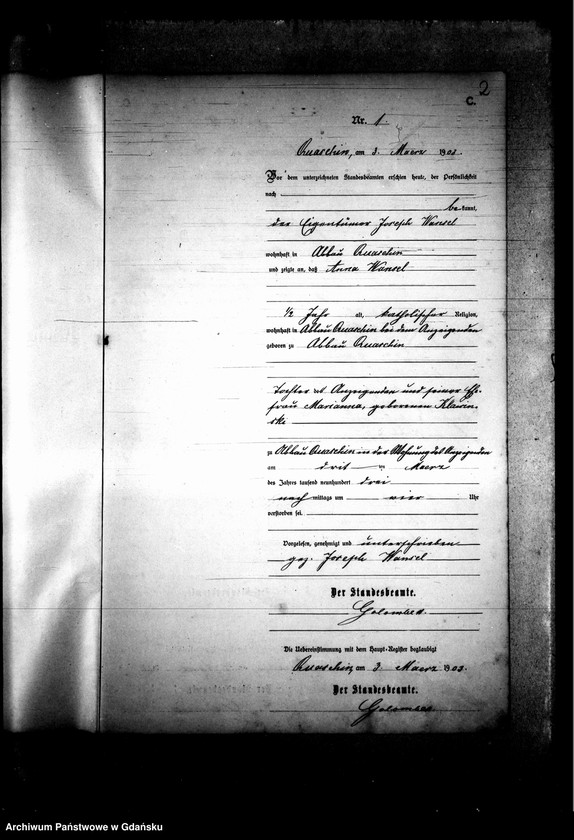 2
C.
Nr. 1.
Quaschin, am 3. Maerz 1903.
Vor dem unterzeichneten Standesbeamten erschien heute, der Persönlichkeit
nach
bekannt,
der Eigentümer Joseph Wansel
wohnhaft in Abbau Quaschin
und zeigte an, daß Anna Wansel
1/2 Jahr alt, katholischer Religion,
wohnhaft in Abbau Quaschin bei dem Anzeigenden
geboren zu Abbau Quaschin
Tochter des Anzeigenden und seiner Ehe-
frau Marianna, geborenen Klawin-
ski
zu Abbau Quaschin in der Wohnung des Anzeigenden
am drit ten Maerz
des Jahres tausend neunhundert drei
nach mittags um vier Uhr
verstorben sei.
Vorgelesen, genehmigt und unterschrieben
gez. Joseph Wansel
Der Standesbeamte.
Golombek.
Die Uebereinstimmung mit dem Haupt-Register beglaubigt
Quaschin, am 3. Maerz 1903.
Der Standesbeamte.
Golombek
Archiwum Państwowe w Gdańsku